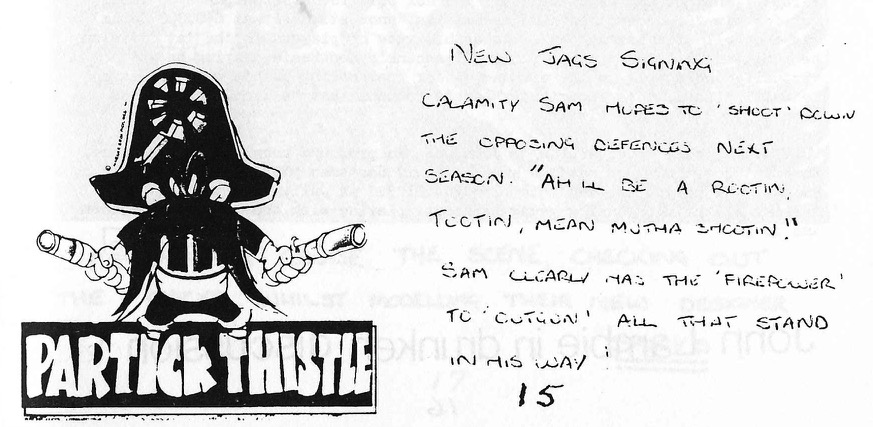 NEW JAGS SIGNING
CALAMITY SAM HOPES TO 'SHOOT' DOWN
THE OPPOSING DEFENCES NEXT
SEASON. "AH LL BE A ROOTIN,
TOOTIN, MEAN MUTHA SHOOTIN!"
SAM CLEARLY HAS THE 'FIREPOWER'
TO 'OUTGUN' ALL THAT STAND
IN HIS WAY!
PARTICK THISTLE
15